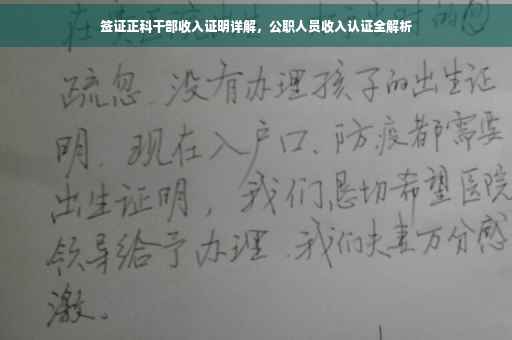 签证正科干部收入证明详解，公职人员收入认证全解析
疏忽、没有办理孩子的出生证
明、现在入户口、防疫都需要
出生证明，我们恳切希望医院
领导给予办理、我们夫妻万分感
激。